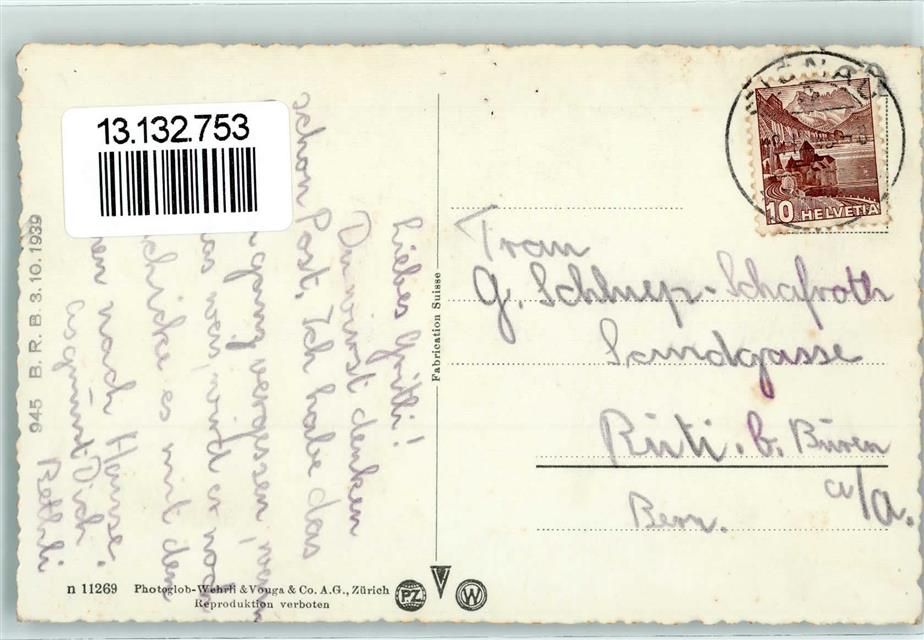 13.132.753
945 B. R. B. 3. 10. 1939
Liebes Gritli!
Du wirst denken
schon Post. Ich habe das
ganz vergessen, wenn
was wei, wird er noch
schicke es mit den
nach Hause.
grüsst Dich
Bethli
Fabrication Suisse
10 HELVETIA
Frau
G. Schluep-Schafroth
Landgasse
Rüti. b. Büren
a/A.
Bern.
n 11269 Photoglob-Wehrli & Vouga & Co. A.G., Zürich
Reproduktion verboten
PZ V W